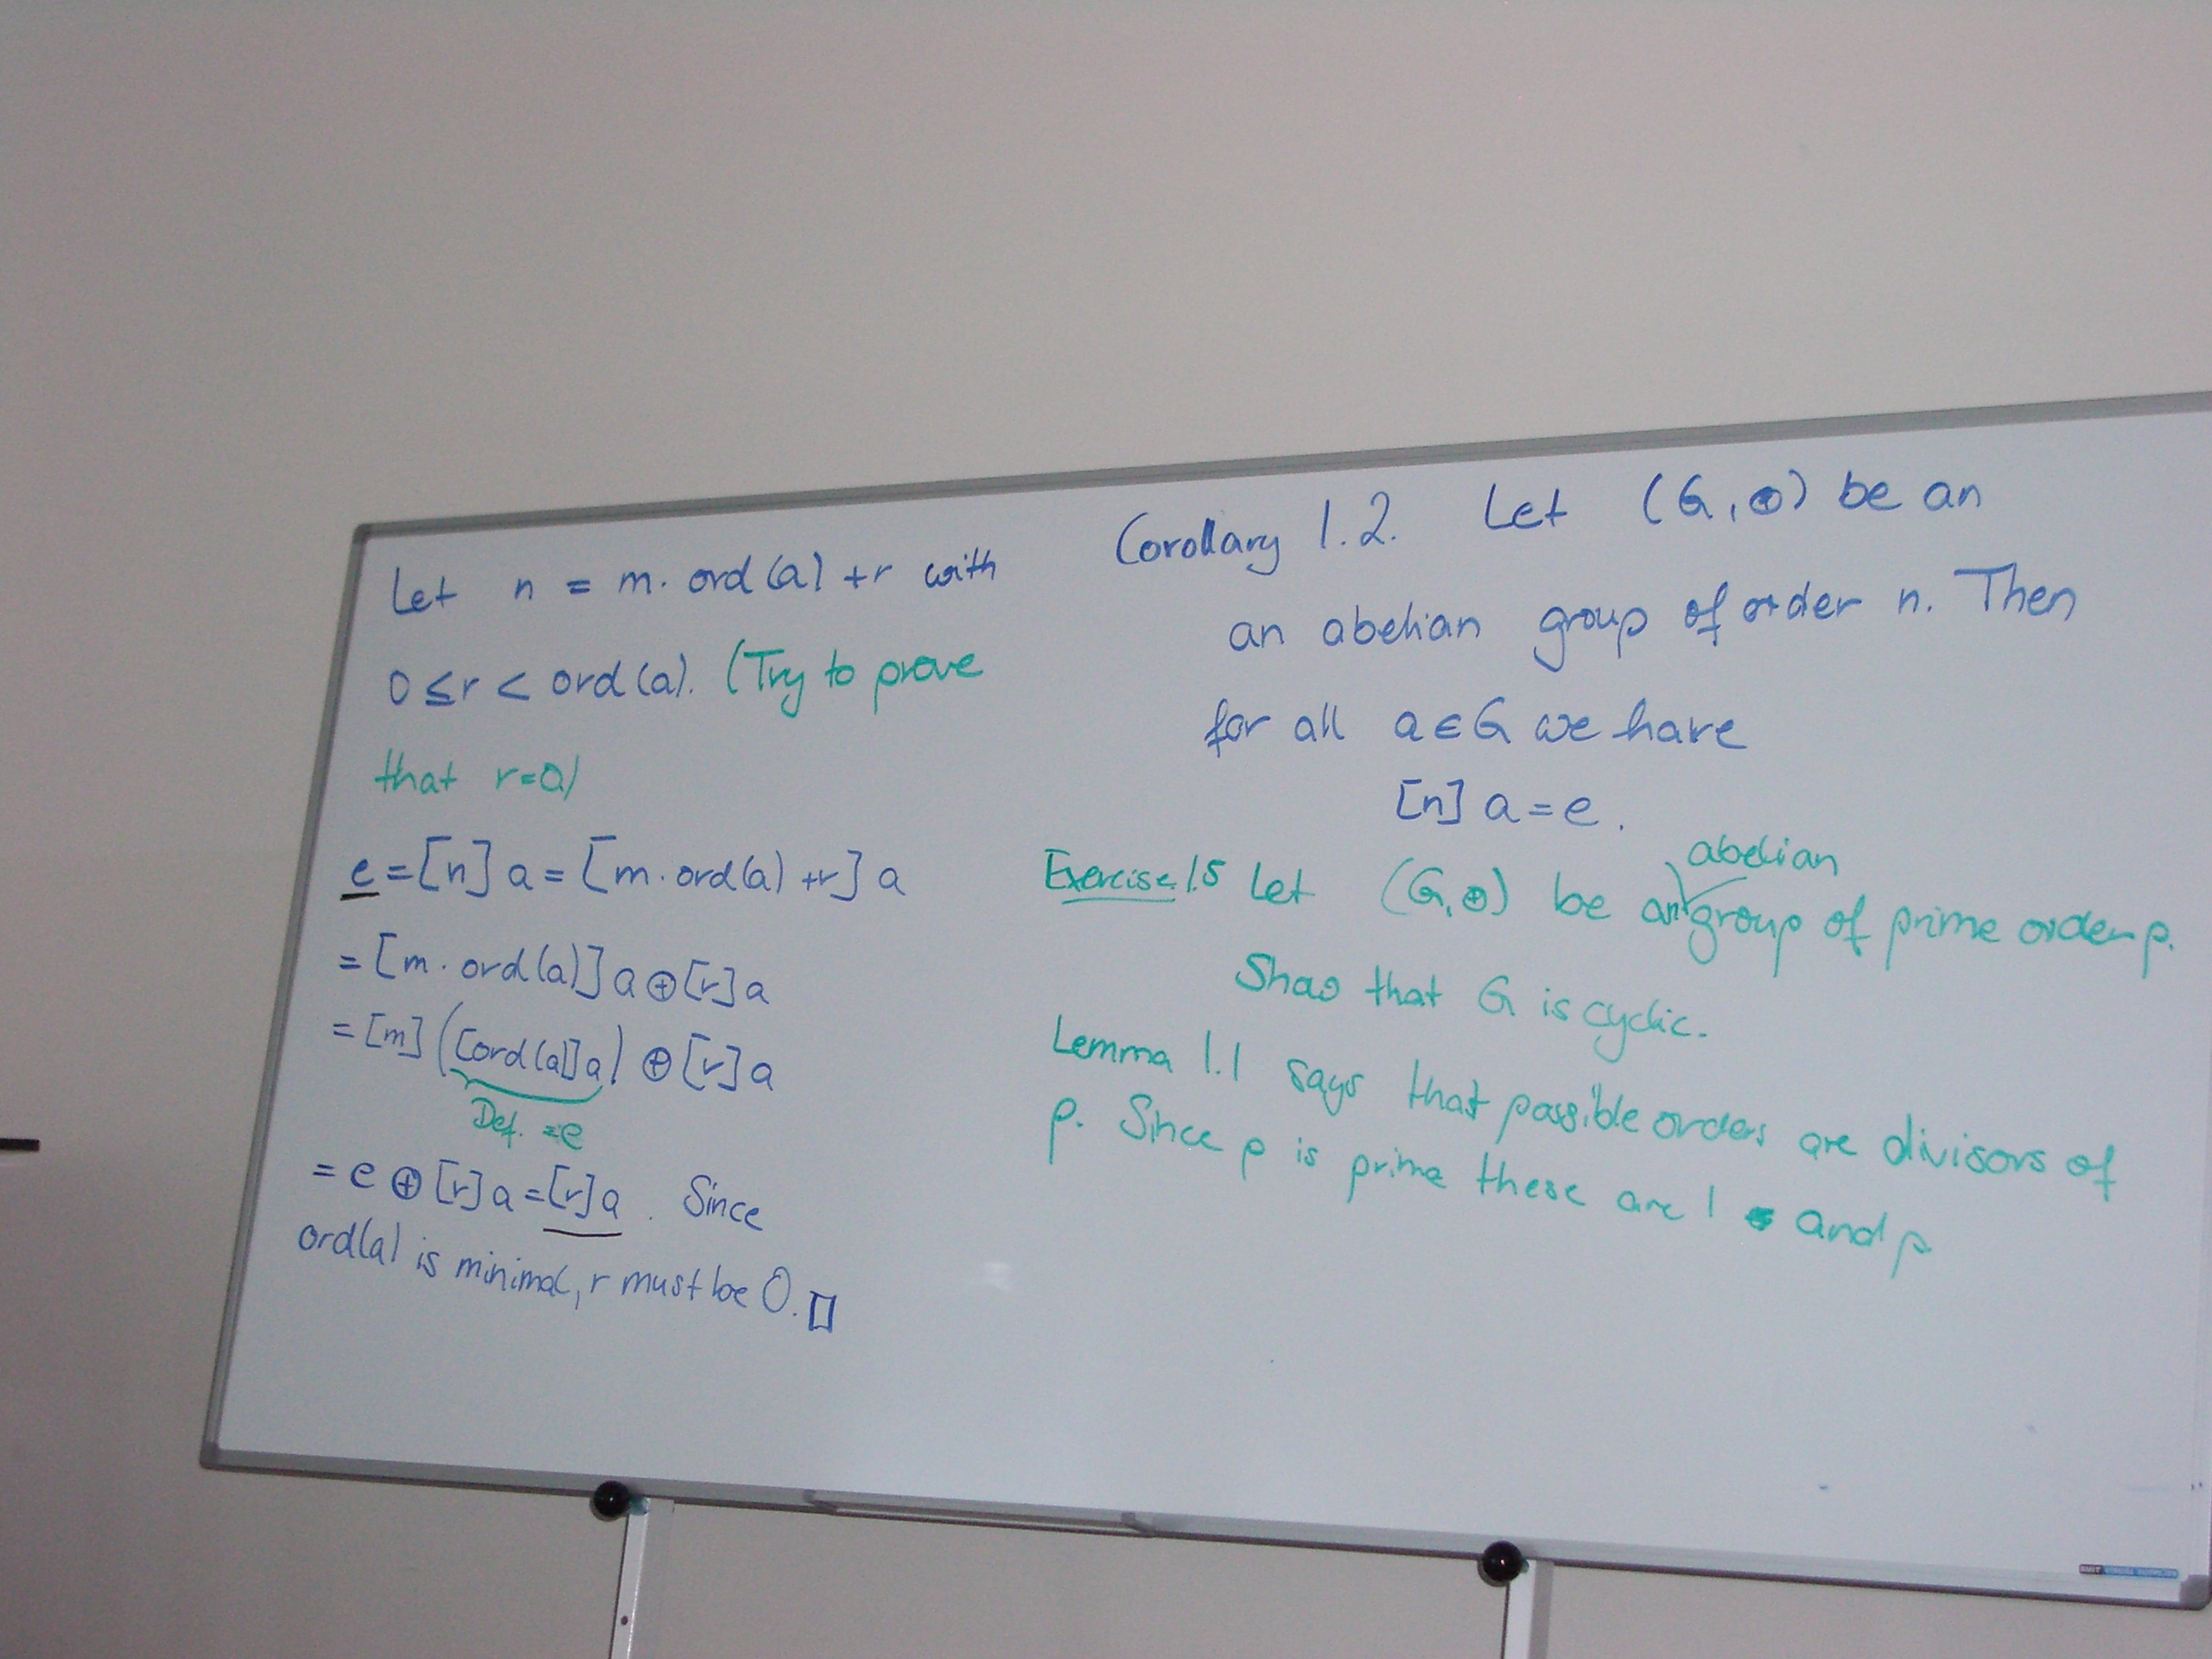 Let n = m. ord(a) +r with
0 ≤ r < ord(a). (Try to prove
that r=0)
e = [n] a = [m. ord(a) +r] a
= [m. ord(a)] a ⊕ [r] a
= [m] ([ord(a)] a) ⊕ [r] a
Def. = e
= e ⊕ [r] a = [r] a. Since
ord(a) is minimal, r must be 0. □
Corollary 1.2. Let (G, ⊕) be an
an abelian group of order n. Then
for all a ∈ G we have
[n] a = e.
abelian
Exercise 1.5 Let (G, ⊕) be an group of prime order p.
Show that G is cyclic.
Lemma 1.1 says that possible orders are divisors of
p. Since p is prime these are 1 and p